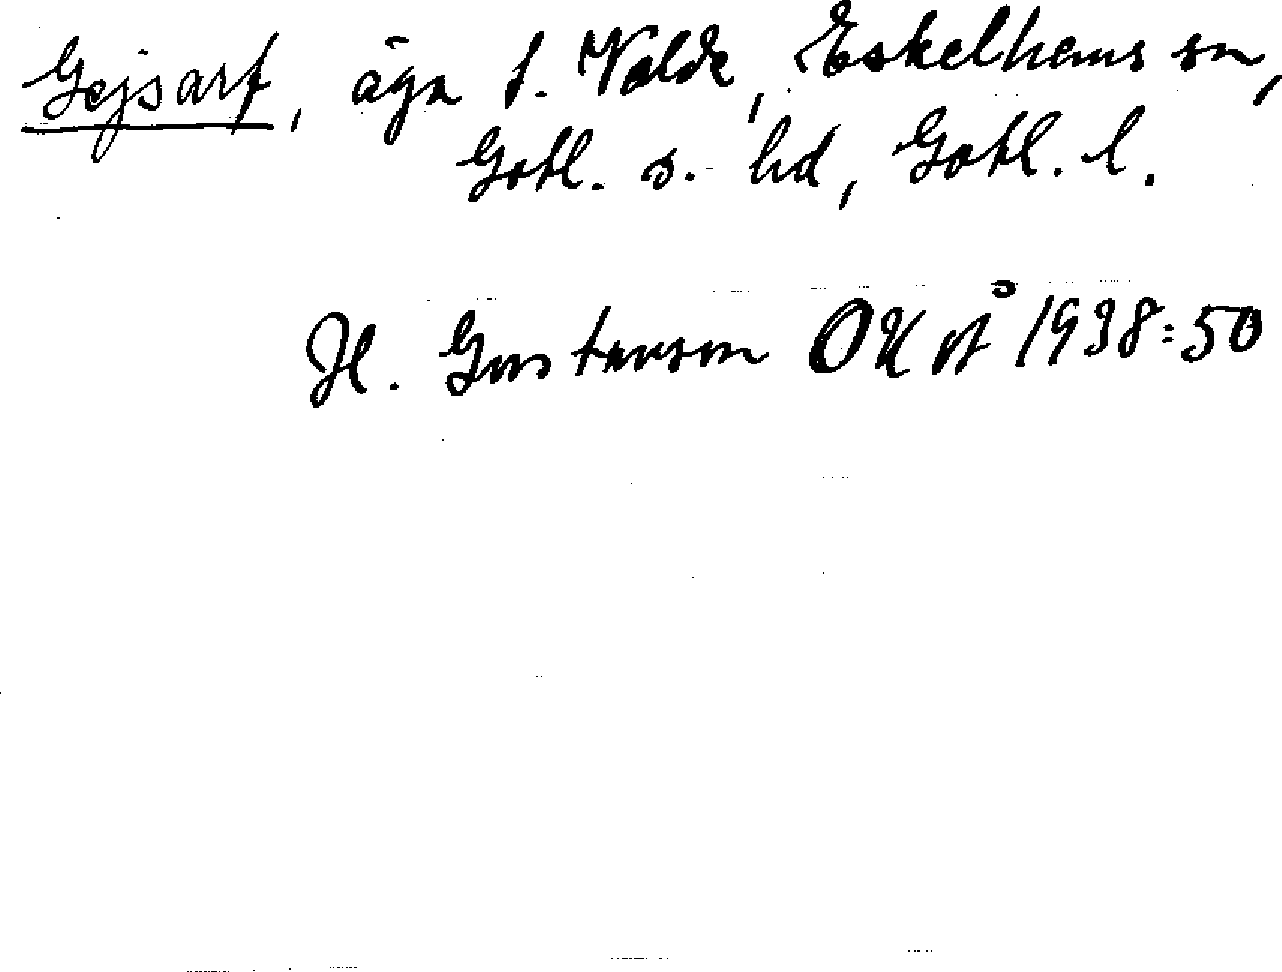 Gejsarf, äga t. Valde, Eskelhems sn,
Gotl. s. hd, Gotl. l.
H. Gustavson OK på 1938:50